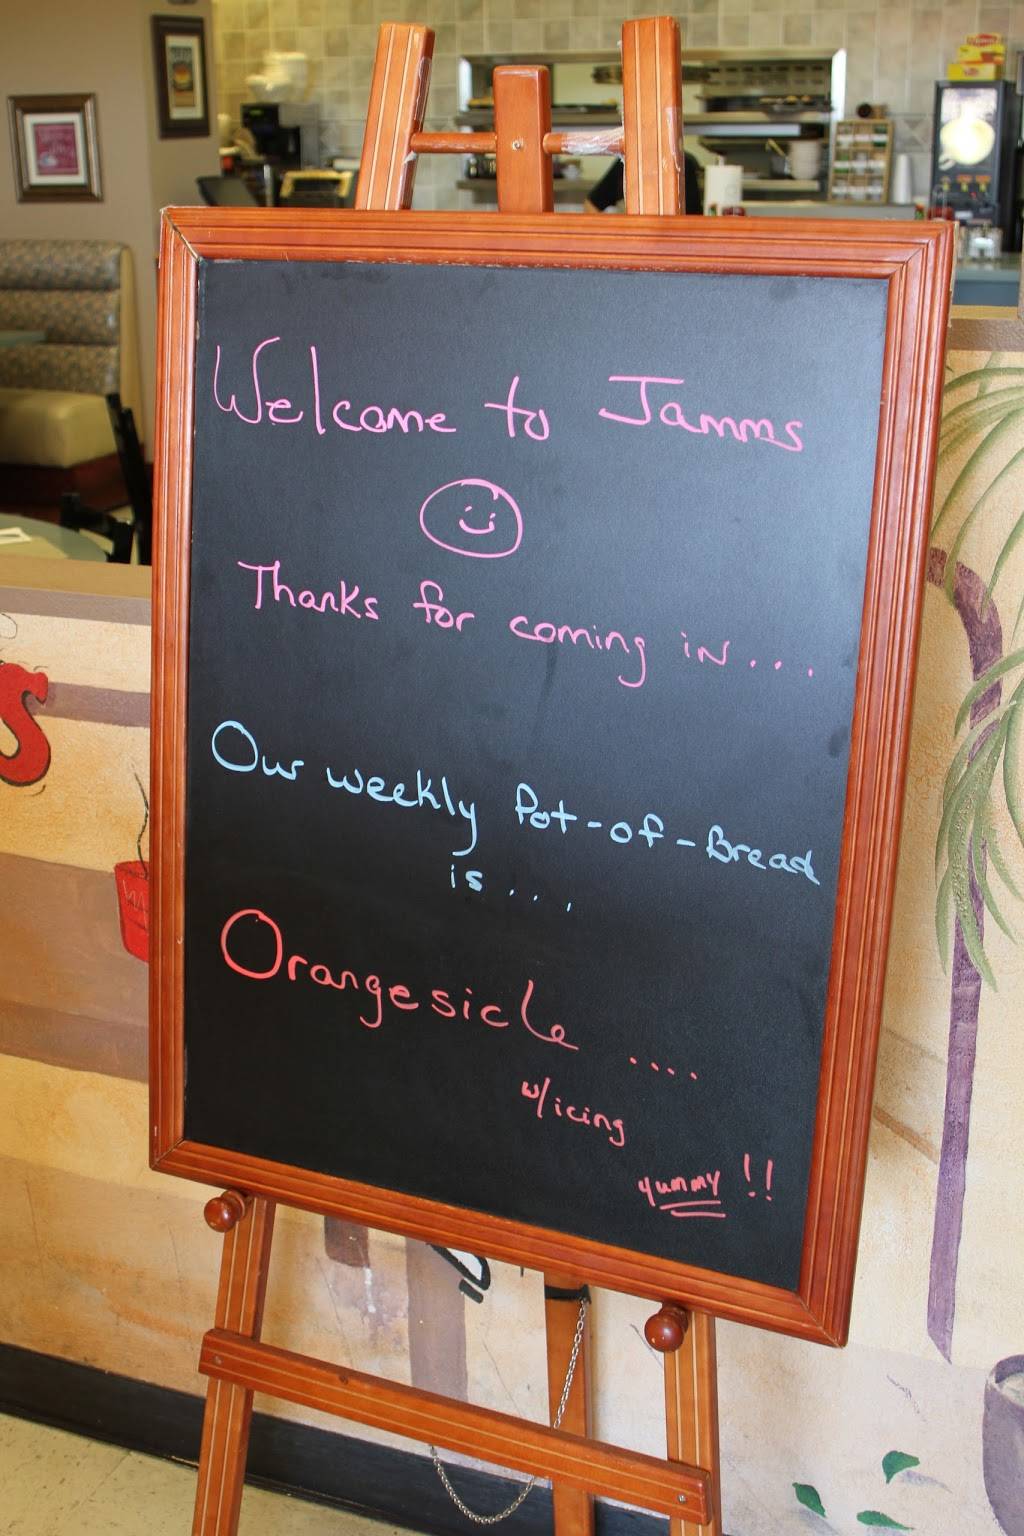 Welcome to Jamms
Thanks for coming in....
Our weekly Pot-of-Bread
is....
Orangesicle ....
w/icing
yummy!!